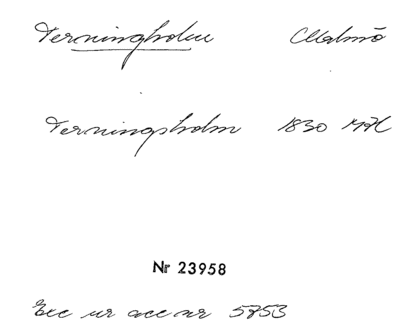 Terningholm Malmö
Terningsholm 1830 MH
Nr 23958
Exc ur acc nr 5753